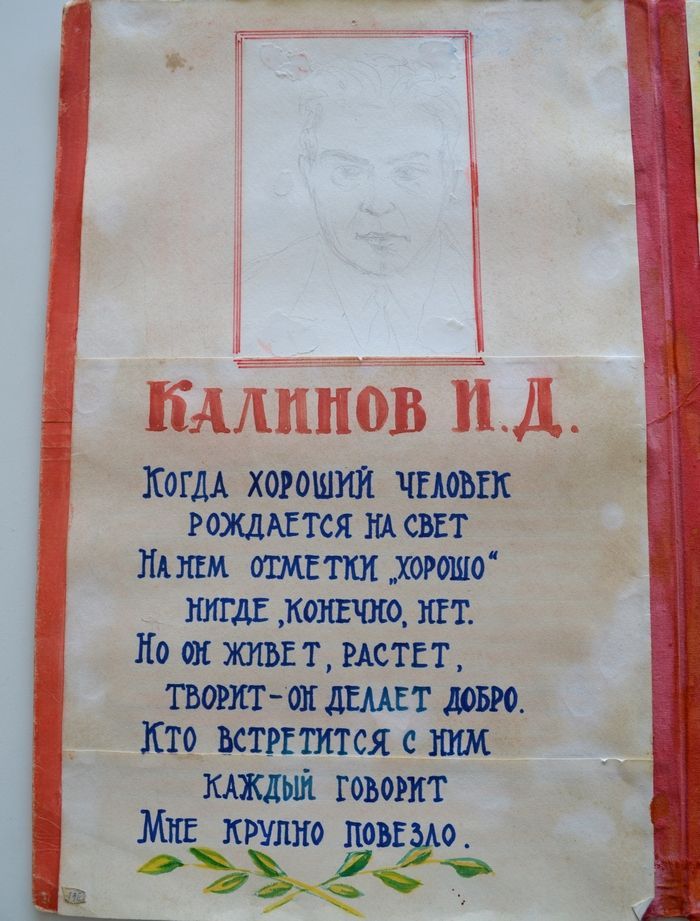 КАЛИНОВ И.Д.
КОГДА ХОРОШИЙ ЧЕЛОВЕК
РОЖДАЕТСЯ НА СВЕТ
НА НЕМ ОТМЕТКИ „ХОРОШО“
НИГДЕ, КОНЕЧНО, НЕТ.
НО ОН ЖИВЕТ, РАСТЕТ,
ТВОРИТ - ОН ДЕЛАЕТ ДОБРО.
КТО ВСТРЕТИТСЯ С НИМ
КАЖДЫЙ ГОВОРИТ
МНЕ КРУПНО ПОВЕЗЛО.